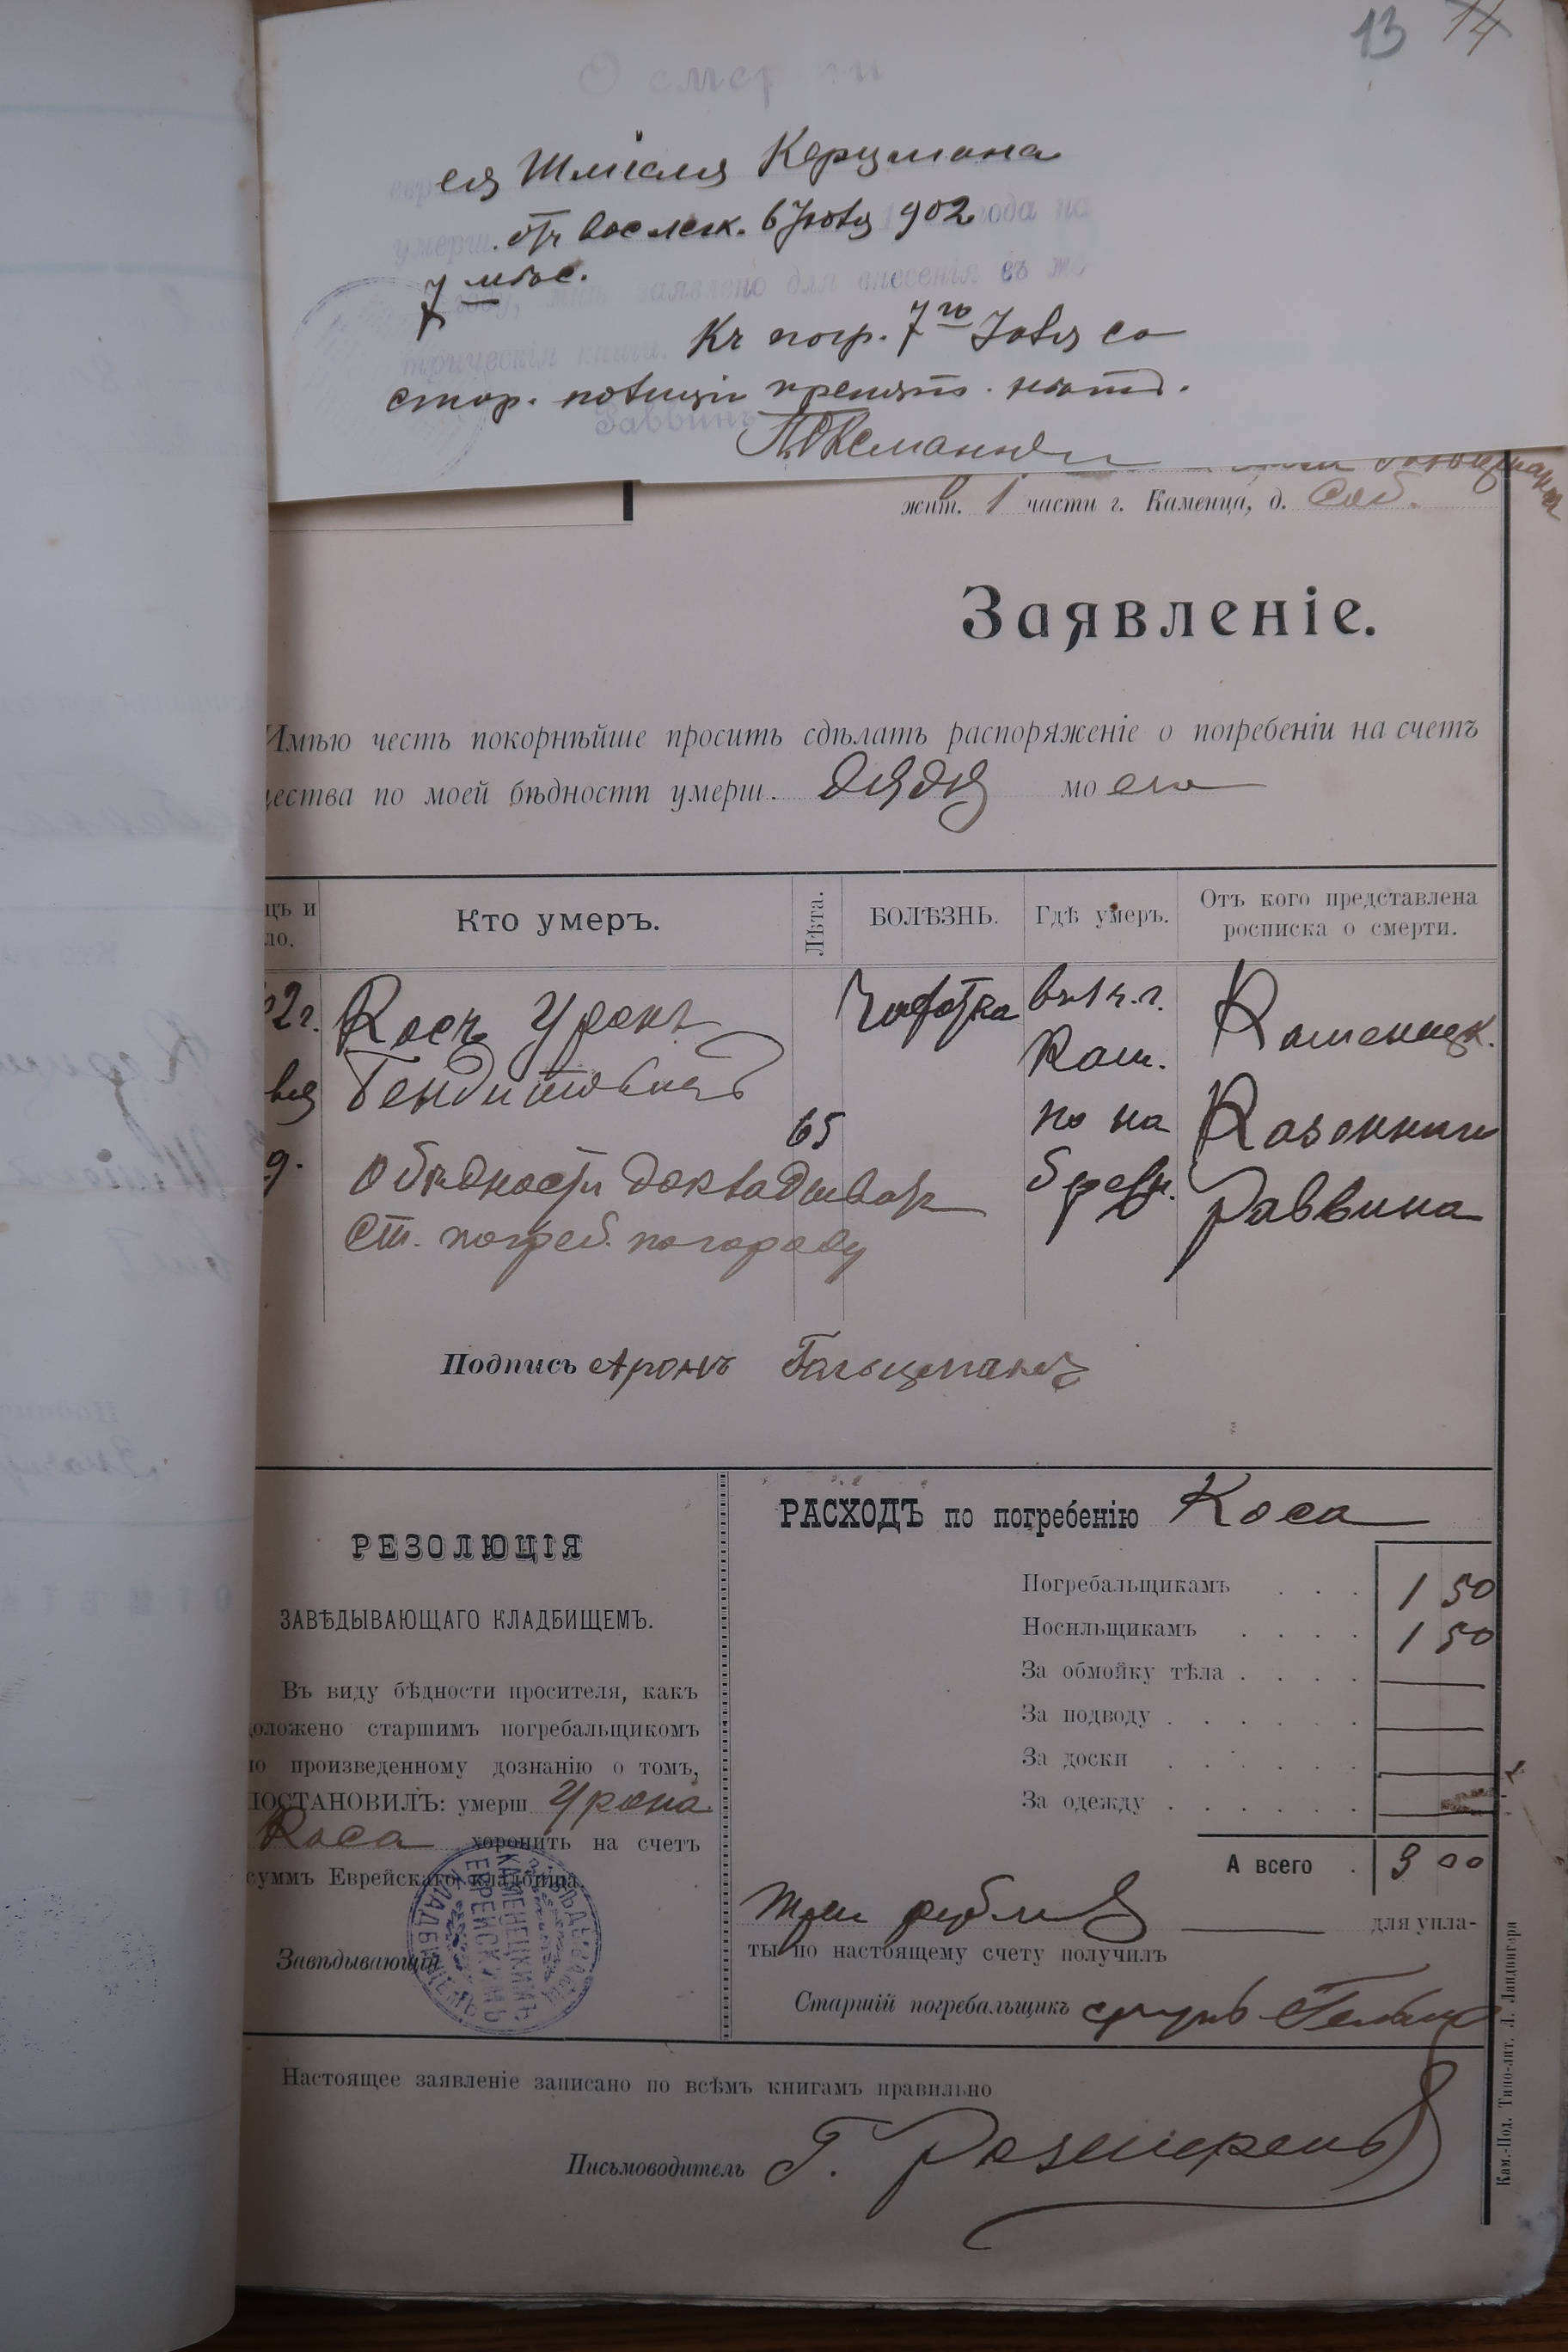 13 14
О смер ти
ея Шмiеля Керцмана
умерш. отъ воспал. 6 Янвя 902 года на
7 мѣс.
заявлено для внесенія въ ме
трическія книги. Къ погр. 7го Янвя со
стор. полиціи препятс. нѣтъ.
Раввинъ
жит. 1 части г. Каменца, д. Соб.
Заявленіе.
Имѣю честь покорнѣйше просить сдѣлать распоряженіе о погребеніи на счетъ
щества по моей бѣдности умерш. дядя моего
цъ и
ло.
Кто умеръ.
Лѣта.
БОЛѢЗНЬ.
Гдѣ умеръ.
Отъ кого представлена
росписка о смерти.
2 г. Косъ Уронъ Чахотка въ 1 ч. г. Каменецк.
Кам.
по на Казеннаго
65
О бѣдности докладывалъ бережн. раввина
Ст. погреб. по городу
Подпись Аронъ Гольцманъ
РЕЗОЛЮЦІЯ
ЗАВѢДЫВАЮЩАГО КЛАДБИЩЕМЪ.
Въ виду бѣдности просителя, какъ
доложено старшимъ погребальщикомъ
по произведенному дознанію о томъ,
ПОСТАНОВИЛЪ: умерш Урона
Коса хоронить на счетъ
суммъ Еврейскаго кладбища.
Завѣдывающій
ЗАВѢДЫВАЮЩІЙ
КАМЕНЕЦКИМЪ
ЕВРЕЙСКИМЪ
КЛАДБИЩЕМЪ
РАСХОДЪ по погребенію Коса
Погребальщикамъ . . . 1 50
Носильщикамъ . . . . 1 50
За обмойку тѣла . . . .
За подводу . . . . .
За доски . . . . .
За одежду . . . . . .
А всего . 3 00
три рубля для упла-
ты по настоящему счету получилъ
Старшій погребальщикъ
Настоящее заявленіе записано по всѣмъ книгамъ правильно
Письмоводитель Г. Розенкранъ
Кам.-Под. Типо-лит. Л. Ландвигера